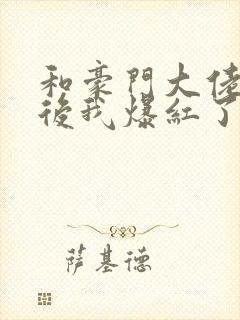 和豪門大佬
後我爆紅了
萨基德